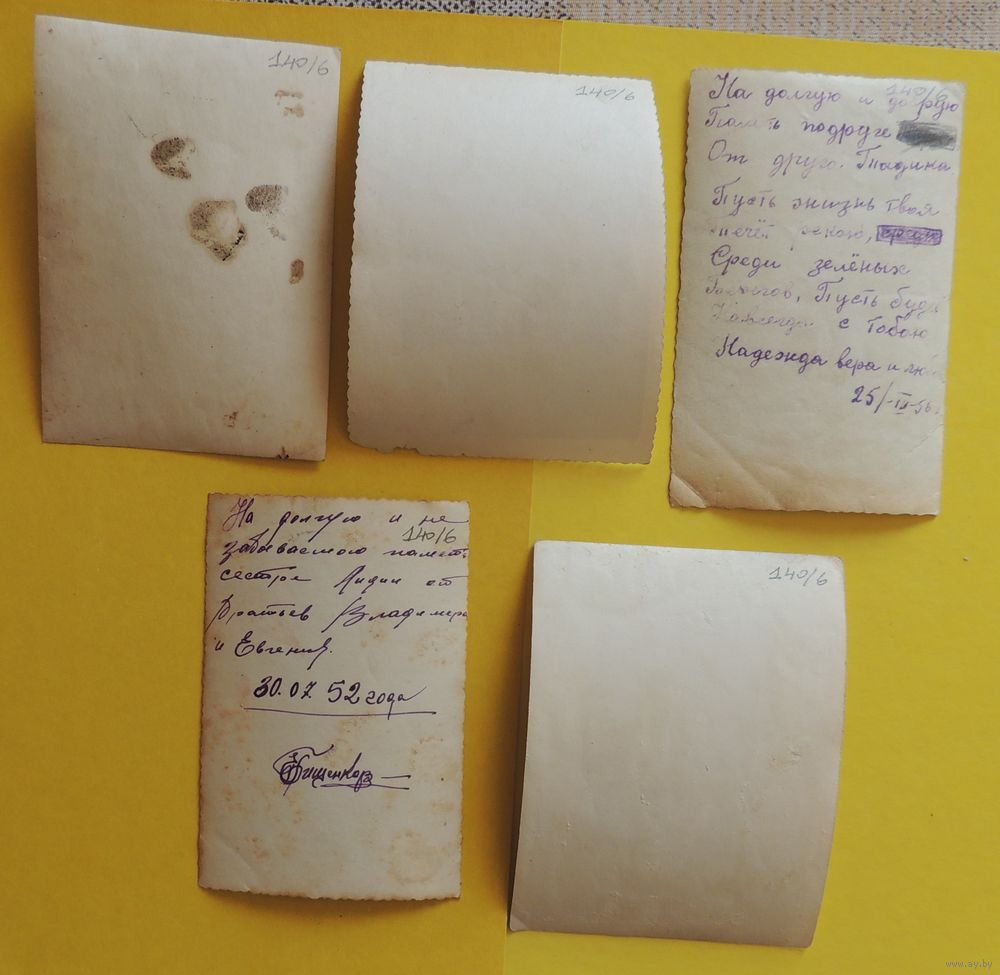 140/6
140/6
140/6
На долгую и добрую
Память подруге
От друга.
Пусть жизнь твоя
течёт рекою,
Среди зелёных
Пусть будет
Навсегда с тобою
Надежда вера и
25/-III-56
140/6
На долгую и не
забываемою память
сестре Лидии от
Братьев Владимера
и Евгения.
30.07 52 года
140/6
www.ay.by